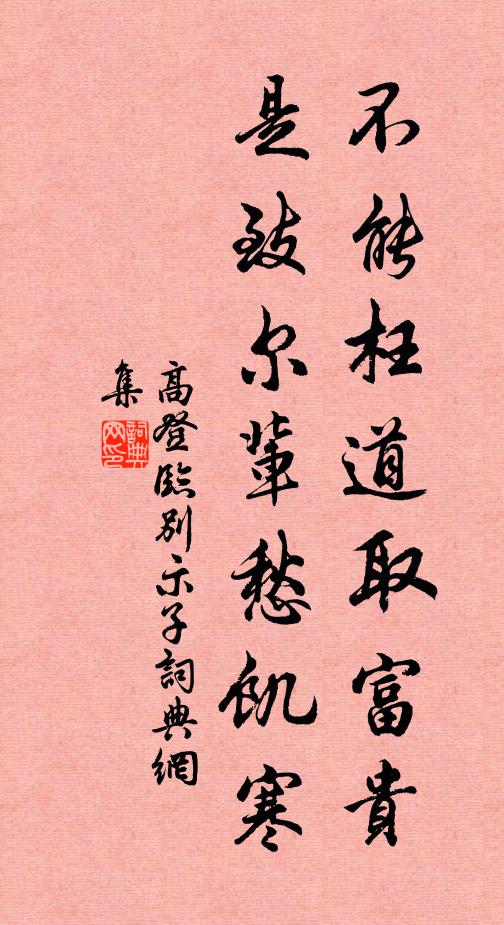 不能枉道取富貴
是致尔輩愁飢寒
高登臨別示子詞典網
集
詞典
网印